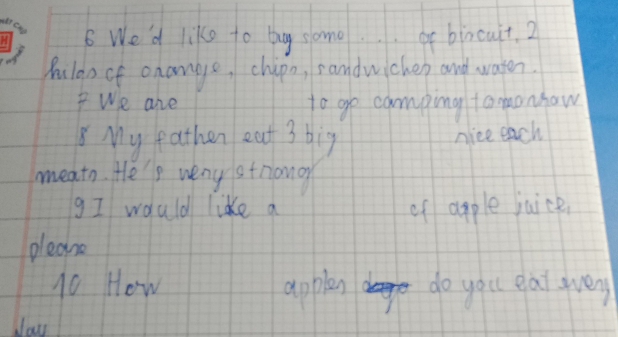 6 We'd like to buy some .... of biscuit, 2
kilos of orange, chips, sandwiches and water.
7 We are to go camping tomorrow
8 My father eat 3 big nice each
meats. He's very strong
9 I would like a of apple juice,
please
10 How apples do you eat every
day